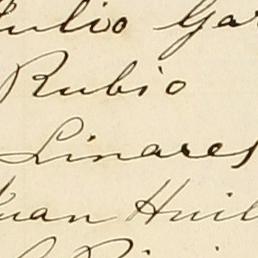 Julio Gar
Rubio
Linares
Juan Huil